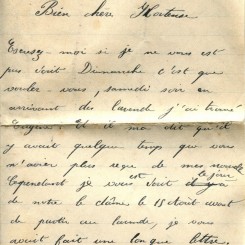 Bien chère Hortense
Excusez-moi si je ne vous est
pas écrit Dimanche c'est que
voulez-vous, samedi soir en
arrivant des
Eugène. Et il m'a dit qu'il
y avait quelque temps que vous
n'aviez plus reçu de mes
Cependant je vous est écrit le jour
de notre le 15 Août avant
de partir au je vous
avait fait une longue lettre